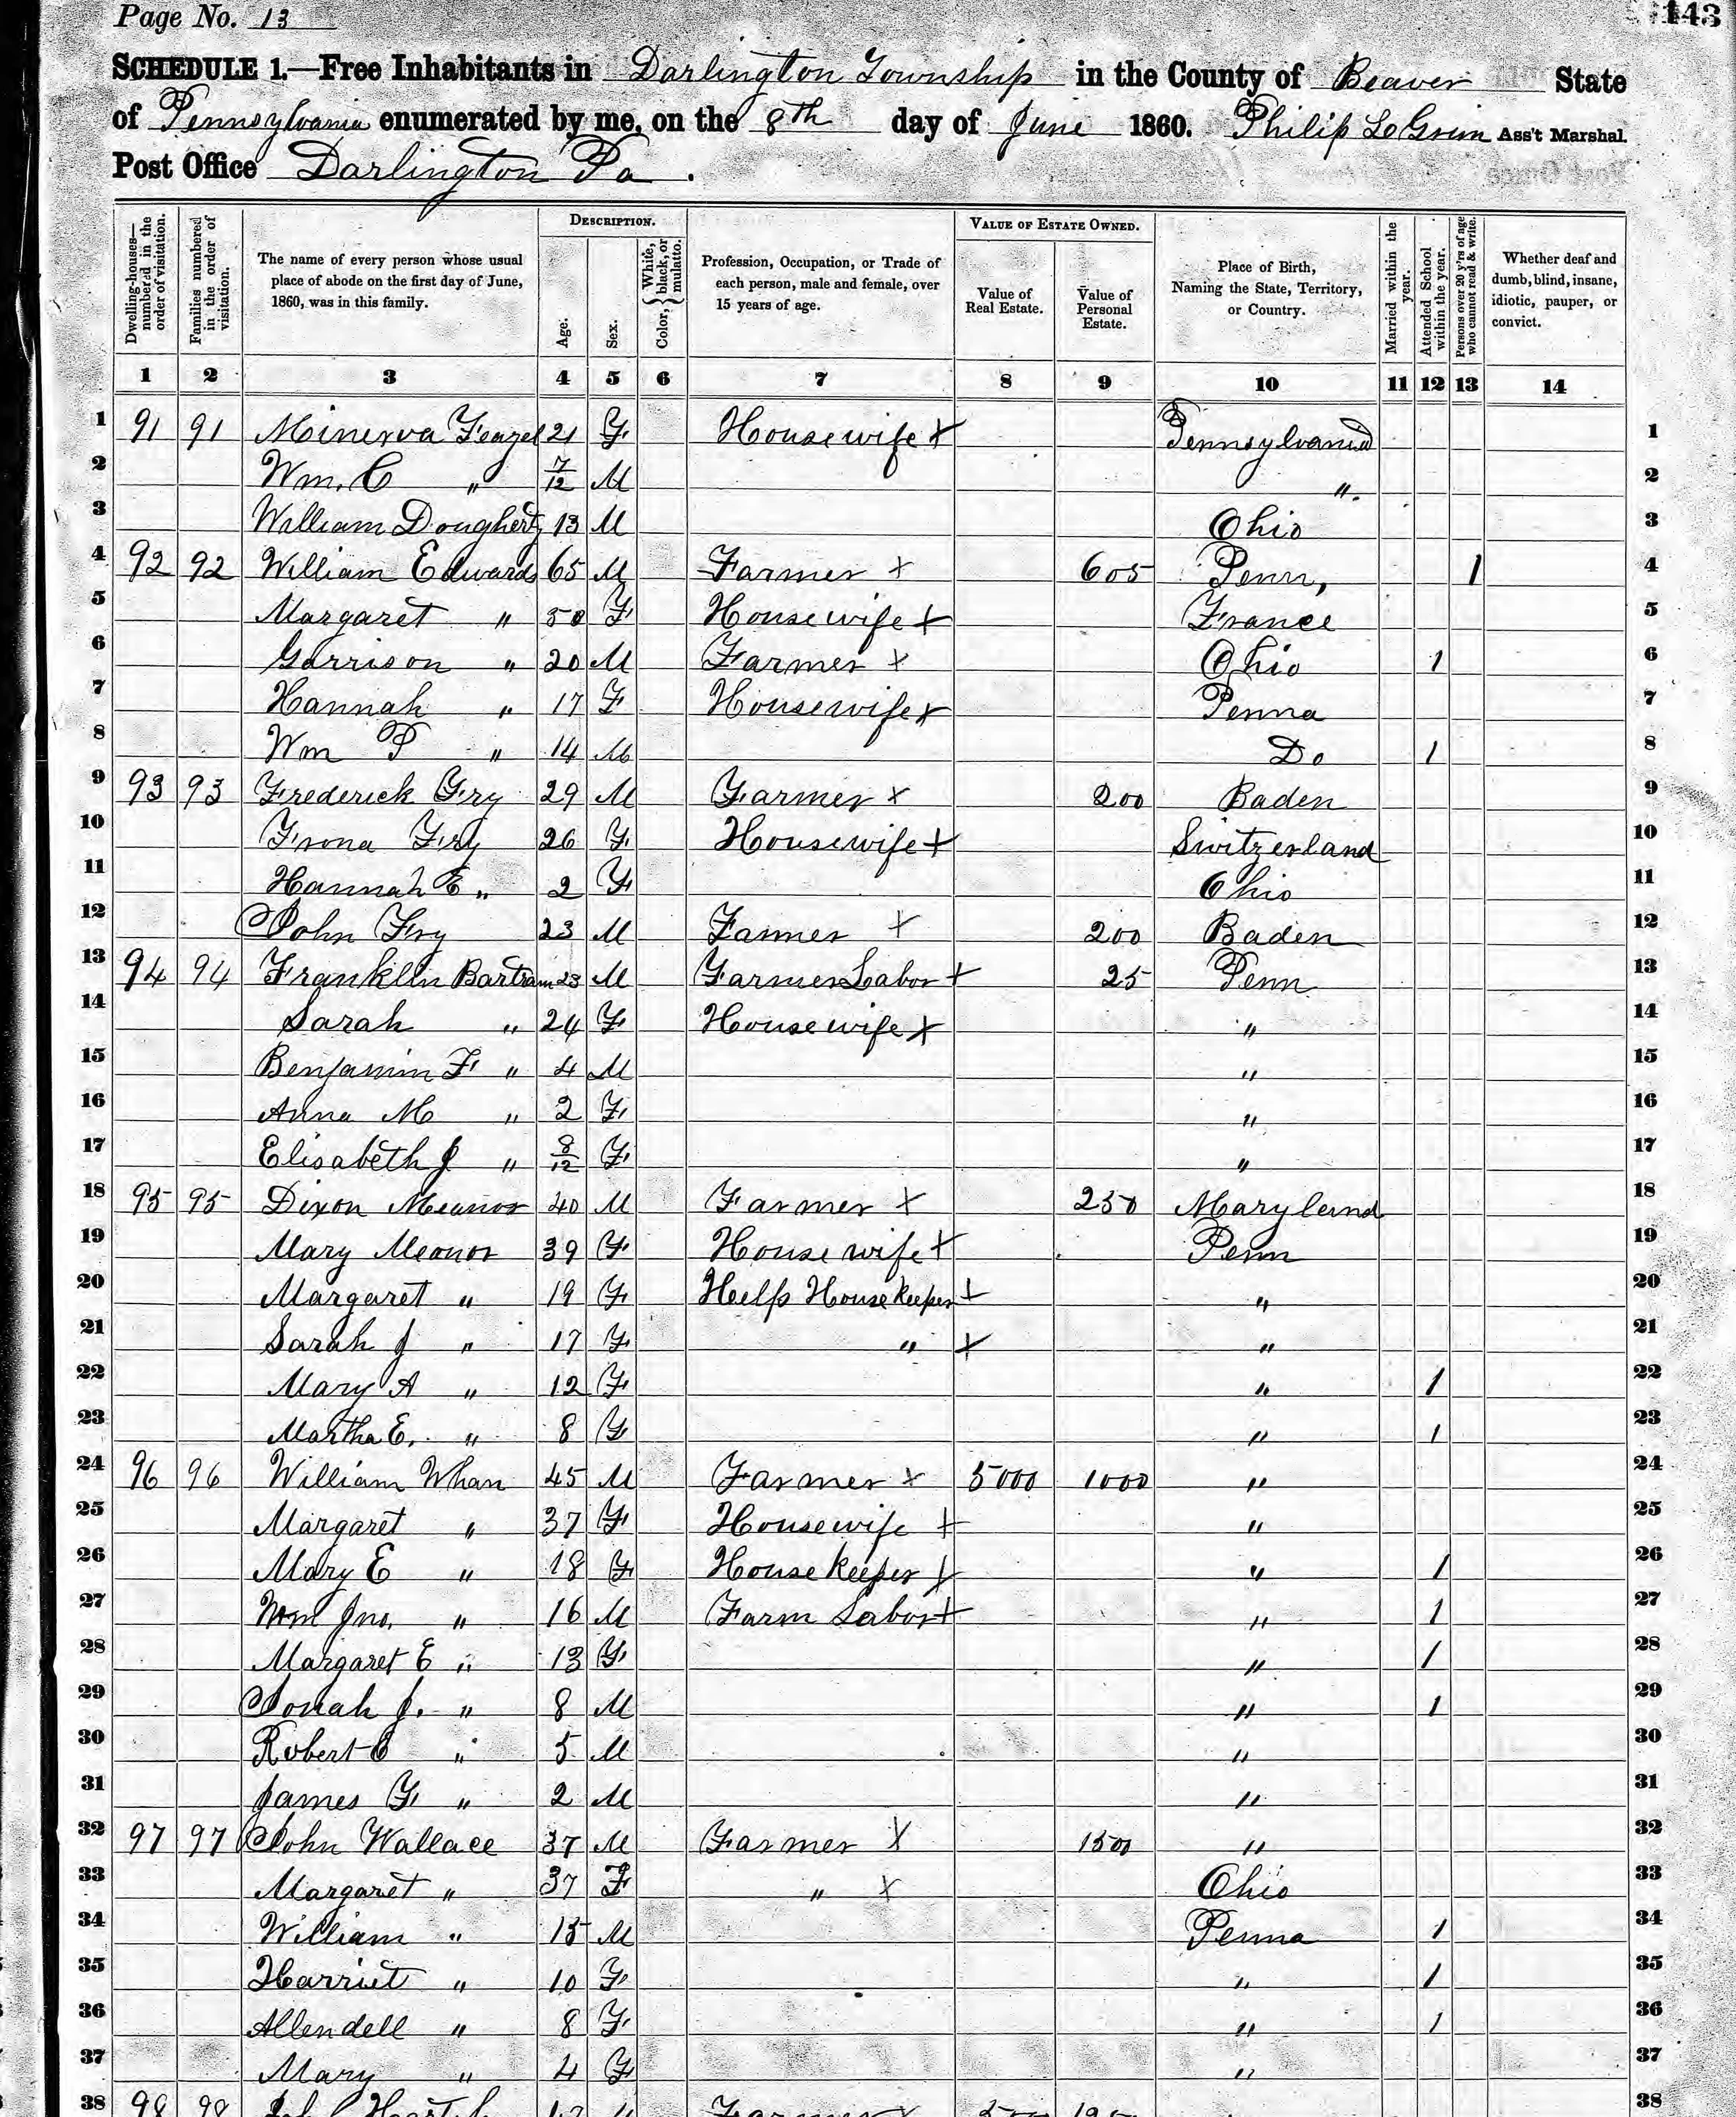 Page No. 13
143
SCHEDULE 1.—Free Inhabitants in Darlington Township in the County of Beaver State
of Pennsylvania enumerated by me, on the 8th day of June 1860. Philip Ass't Marshal.
Post Office Darlington Pa.
Dwelling-houses—numbered in the order of visitation.
Families numbered in the order of visitation.
The name of every person whose usual place of abode on the first day of June, 1860, was in this family.
DESCRIPTION.
Age.
Sex.
Color, { White, black, or mulatto.
Profession, Occupation, or Trade of each person, male and female, over 15 years of age.
VALUE OF ESTATE OWNED.
Value of Real Estate.
Value of Personal Estate.
Place of Birth, Naming the State, Territory, or Country.
Married within the year.
Attended School within the year.
Persons over 20 y'rs of age who cannot read & write.
Whether deaf and dumb, blind, insane, idiotic, pauper, or convict.
1 2 3 4 5 6 7 8 9 10 11 12 13 14
1 91 91 Minerva 21 F Housewife + Pennsylvania 1
2 Wm. C " 7/12 M " 2
3 William Dougherty 13 M Ohio 3
4 92 92 William Edwards 65 M Farmer + 605 Penn, 1 4
5 Margaret " 50 F Housewife + France 5
6 Garrison " 20 M Farmer + Ohio 1 6
7 Hannah " 17 F Housewife + Penna 7
8 Wm P " 14 M Do 1 8
9 93 93 Frederick Fry 29 M Farmer + 200 Baden 9
10 Frona Fry 26 F Housewife + Switzerland 10
11 Hannah E " 2 F Ohio 11
12 John Fry 23 M Farmer + 200 Baden 12
13 94 94 Franklin Bartram 23 M Farmer Labor + 25 Penn 13
14 Sarah " 24 F Housewife + " 14
15 Benjamin F " 4 M " 15
16 Anna M " 2 F " 16
17 Elisabeth J " 8/12 F " 17
18 95 95 Dixon Meanor 40 M Farmer + 250 Maryland 18
19 Mary Meanor 39 F House wife + Penn 19
20 Margaret " 19 F Help House keeper + " 20
21 Sarah J " 17 F " + " 21
22 Mary A " 12 F " 1 22
23 Martha E. " 8 F " 1 23
24 96 96 William Whan 45 M Farmer + 5000 1000 " 24
25 Margaret " 37 F Housewife + " 25
26 Mary E " 18 F House keeper + " 1 26
27 Wm Jno. " 16 M Farm Labor + " 1 27
28 Margaret E " 13 F " 1 28
29 Jonah J. " 8 M " 1 29
30 Robert C " 5 M " 30
31 James G " 2 M " 31
32 97 97 John Wallace 37 M Farmer + 1500 " 32
33 Margaret " 37 F " + Ohio 33
34 William " 15 M Penna 1 34
35 Harriet " 10 F " 1 35
36 Allendell " 8 F " 1 36
37 Mary " 4 F " 37
38 98 98 Farmer 38